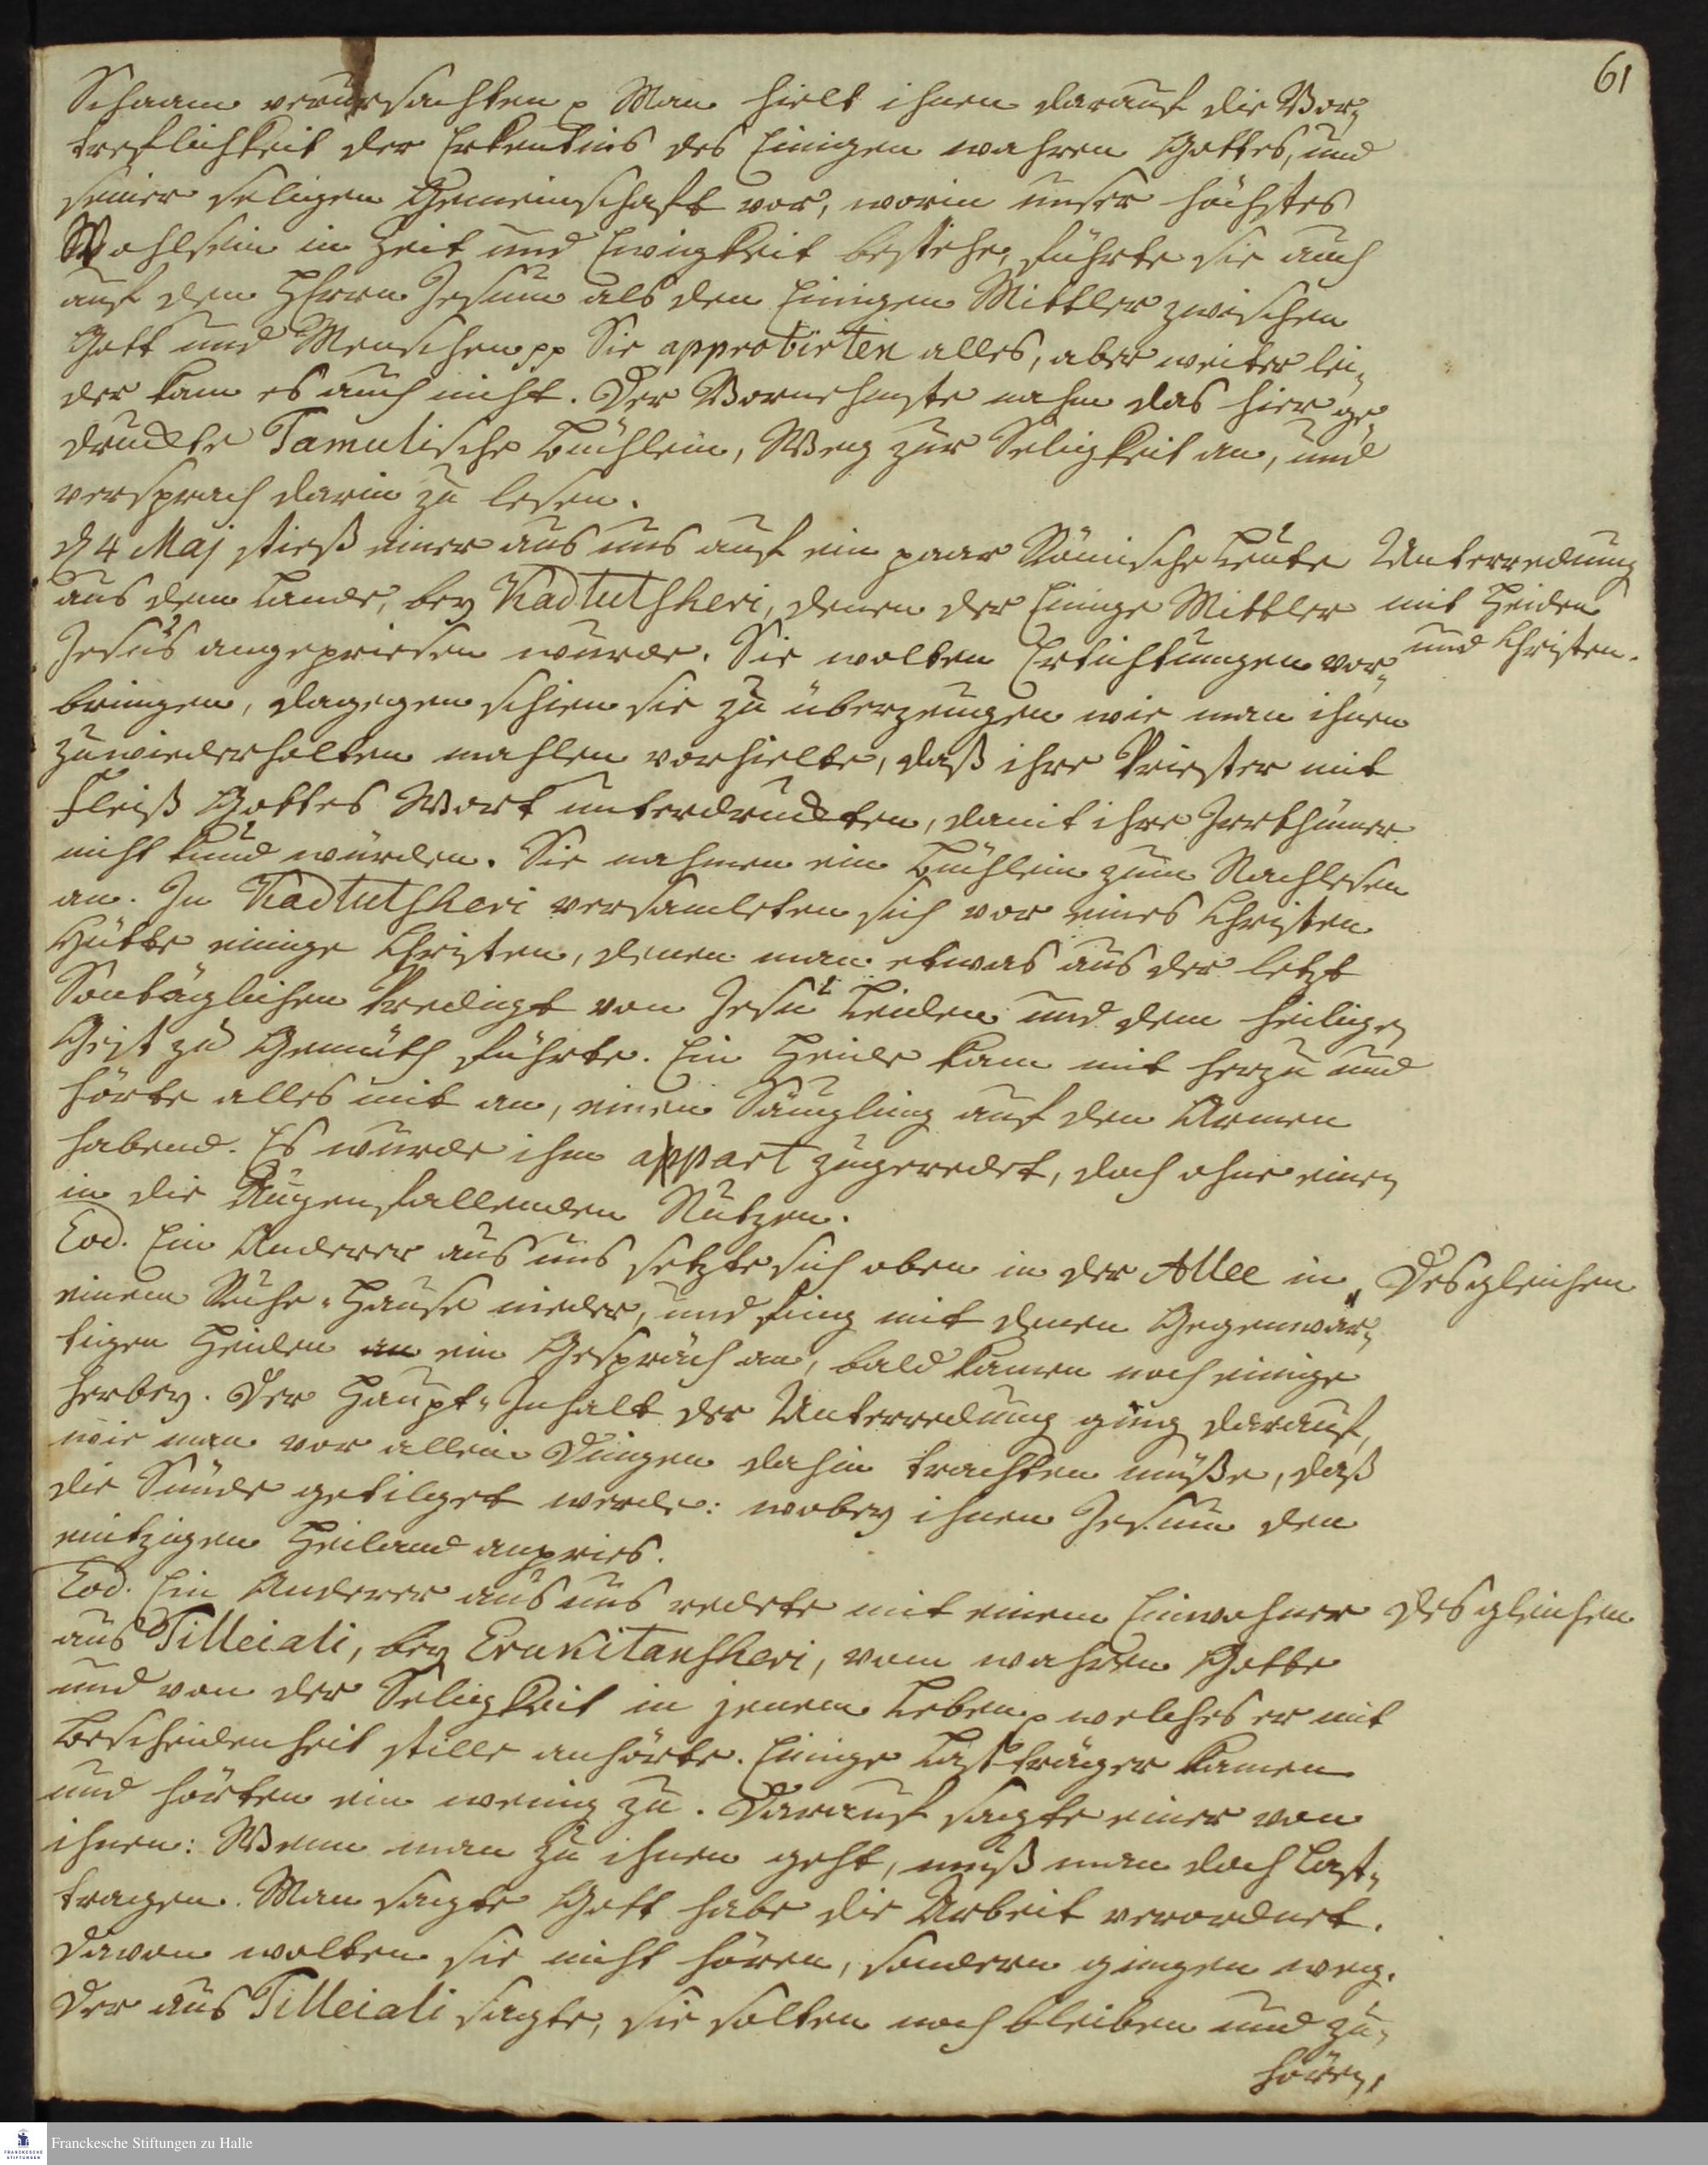 61
Schaam verursachten p Man hielt ihnen darauf die Vor-
treflichkeit der Erkentnis des Einigen wahren Gottes, und
seiner seligen Gemeinschaft vor, worin unser höchstes
Wohlsein in Zeit und Ewigkeit bestehe, führte sie auch
auf den HErrn Jesum als den Einigen Mittler zwischen
Gott und Menschen pp Sie approbirten alles, aber weiter lei-
der kam es auch nicht. Der Vornehmste nahm das hier ge-
druckte Tamulische Büchlein, Weg zur Seligkeit an, und
versprach darin zu lesen.
d 4 Maj stieß einer aus uns auf ein paar Römische Leute
aus dem Lande, bey Kadtutsheri, denen der Einige Mittler
Jesus angepriesen wurde. Sie wolten Ertichtungen vor-
bringen, dagegen schien sie zu überzeugen wie man ihnen
zuwiederholten mahlen vorhielte, daß ihre Priester mit
Fleiß Gottes Wort unterdruckten, damit ihre Irrthümer
nicht kund würden. Sie nahmen ein Büchlein zum Nachlesen
an. In Kadtutsheri versamleten sich vor eines Christen
Hütte einige Christen, denen man etwas aus der letzt
Sontäglichen Predigt von Jesu Leiden und dem heiligen
Geist zu Gemüth führte. Ein Heide kam mit herzu und
hörte alles mit an, einen Säugling auf den Armen
habend. Es wurde ihm appart zugeredet, doch ohne einen
in die Augen fallenden Nutzen.
Unterredung
mit Heiden
und Christen.
Eod. Ein Anderer aus uns setzte sich oben in der Allee in
einem Ruhe-Hause nieder, und fing mit denen Gegenwär-
tigen Heiden an ein Gespräch an, bald kamen noch einige
herbey. Der Haupt-Inhalt der Unterredung ging darauf,
wie man vor allen Dingen dahin trachten müße, daß
die Sünde getilget werde: wobey ihnen Jesum den
eintzigen Heiland anpries.
Desgleichen
Eod. Ein Anderer aus uns redete mit einem Einwohner
aus Tilleiali, bey Erukitansheri, vom wahren Gotte
und von der Seligkeit in jenem Leben p welches er mit
Bescheidenheit stille anhörte. Einige Lastträger kamen
und hörten ein wenig zu. Darauf sagte einer von
ihnen: Wenn man zu ihnen geht, muß man doch Last-
tragen. Man sagte Gott habe die Arbeit verordnet.
Davon wolten sie nicht hören, sondern gingen weg.
Der aus Tilleiali sagte, sie solten noch bleiben und zu-
hören,
desgleichen
Franckesche Stiftungen zu Halle
FRANCKESCHE
STIFTUNGEN